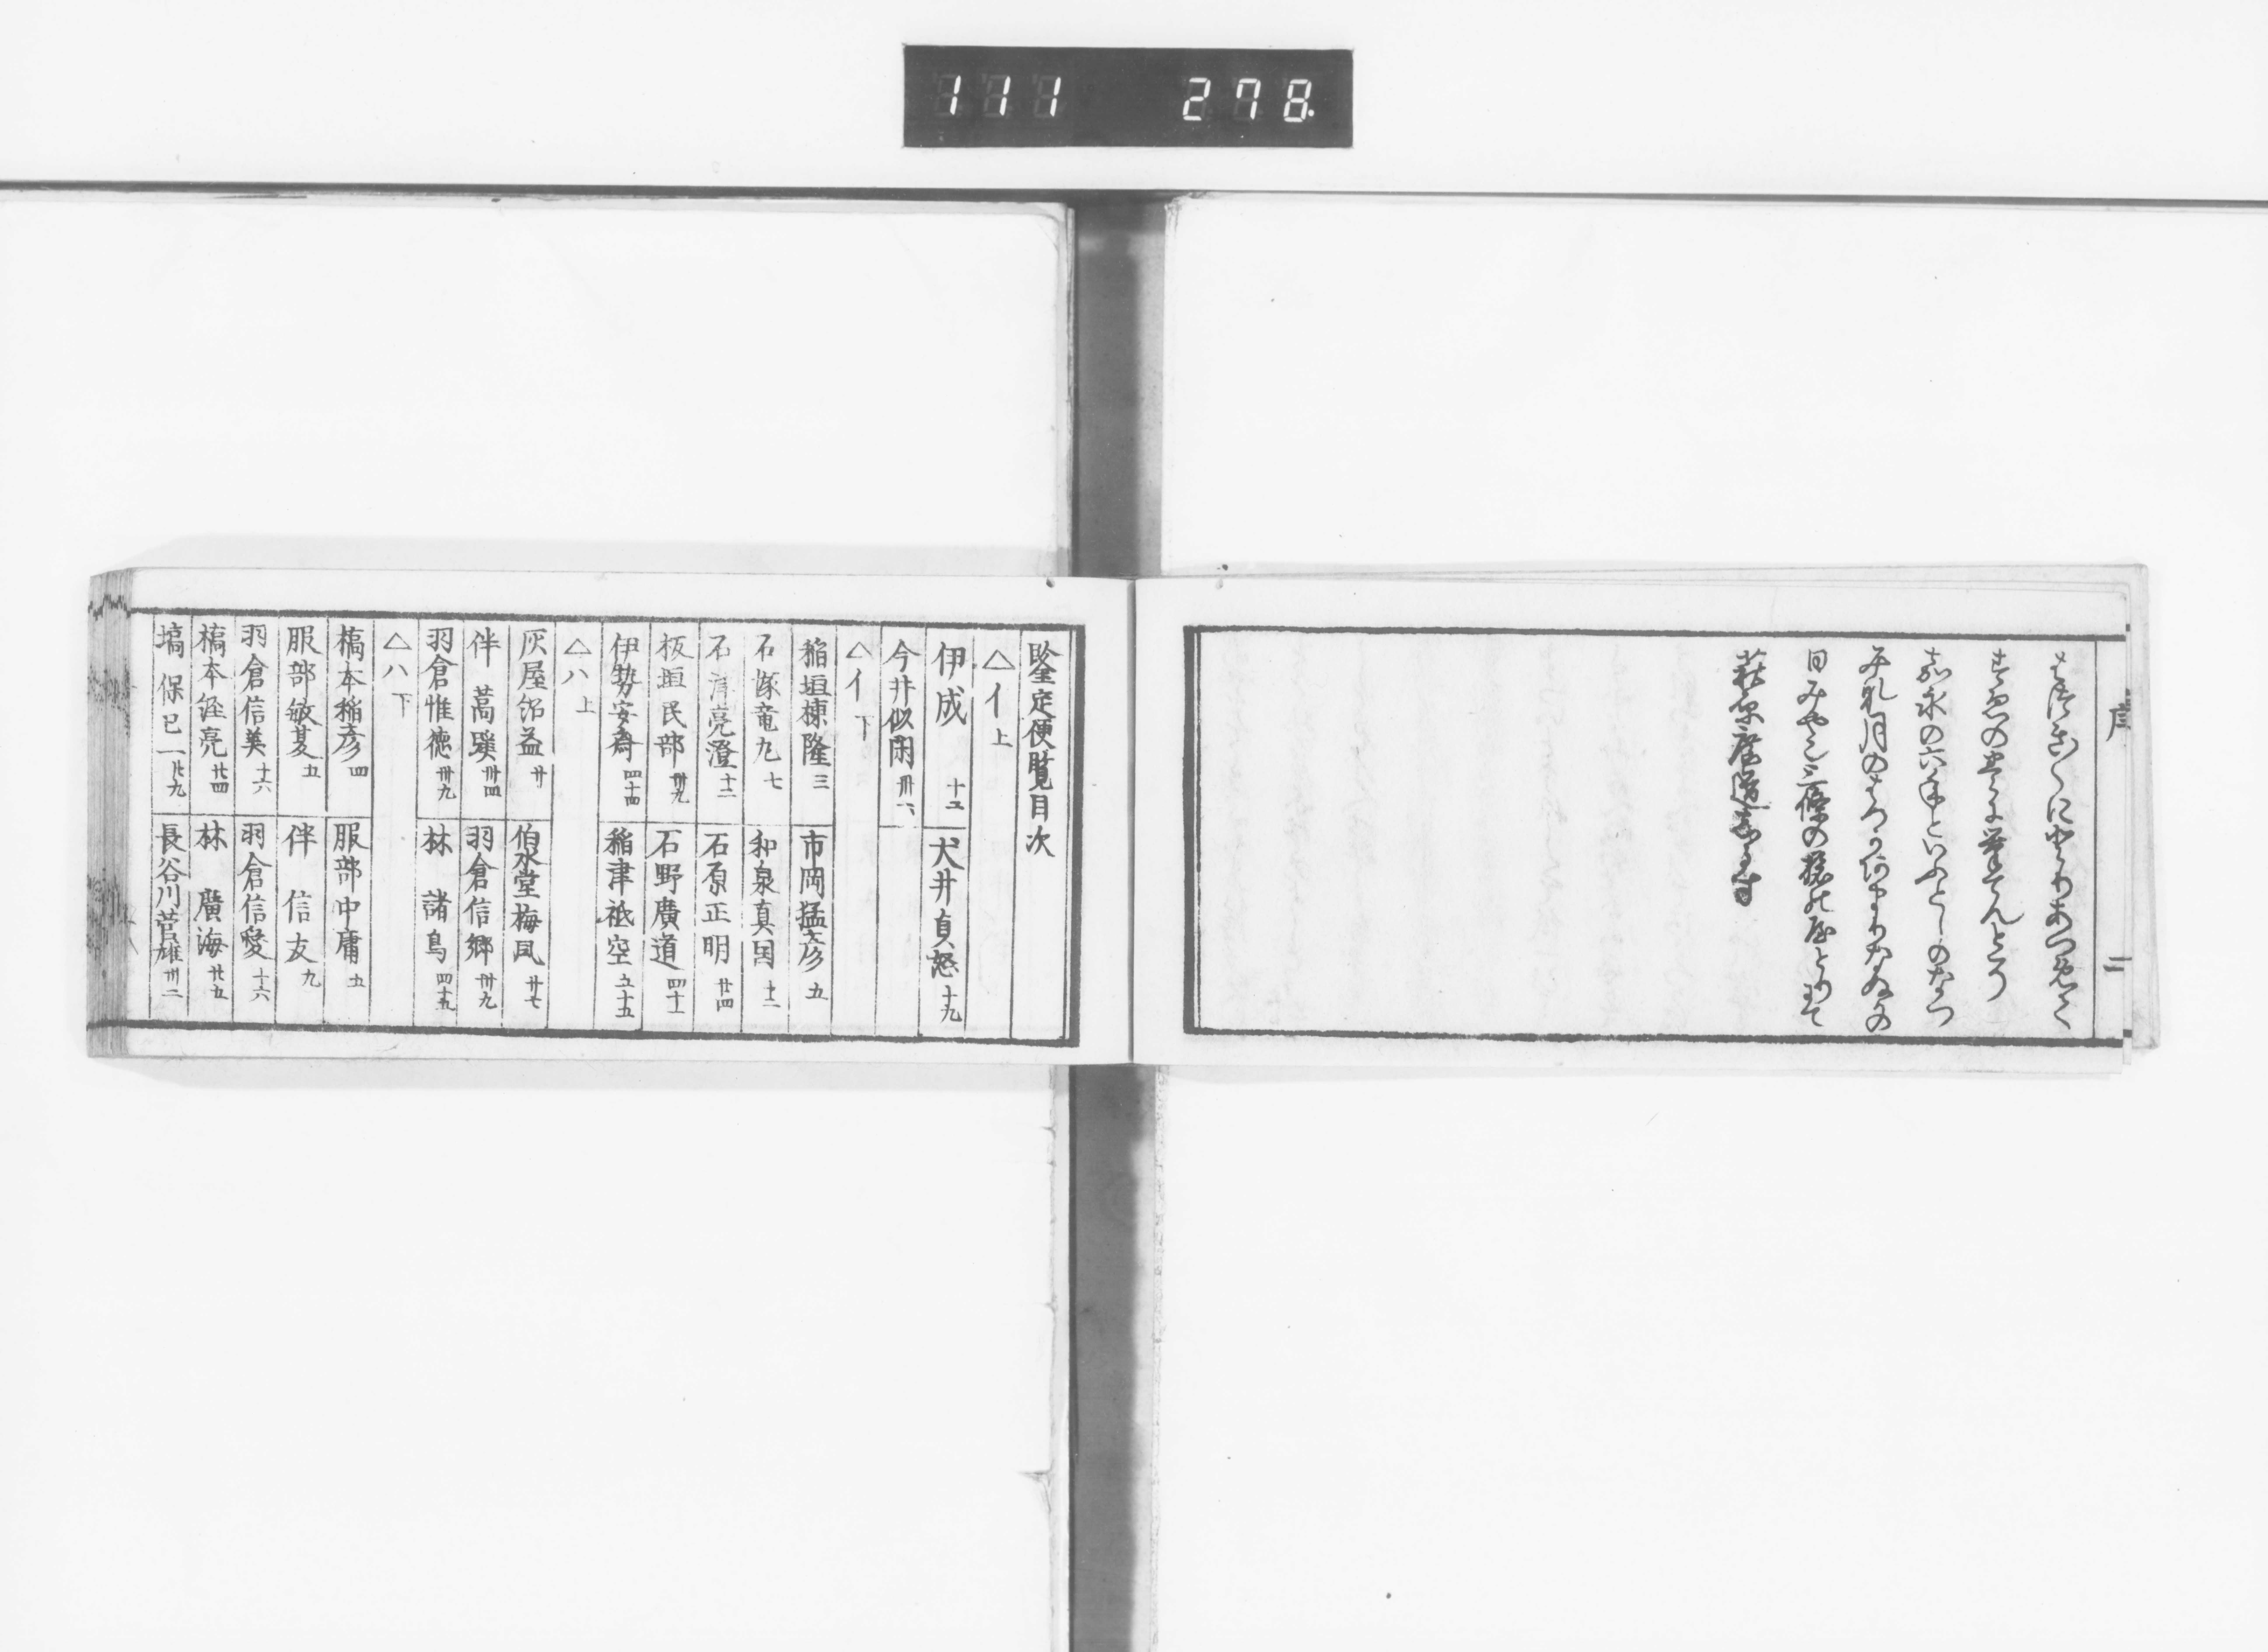 111 278
序
二
嘉永の六年といふとしのなつ
みな月の
日みやこ三條の
萩原廣道しるす
鑒定便覧目次
△イ上
伊成 十五 犬井貞恕 十九
今井似閑 卅六
△イ下
稲垣棟隆 三 市岡猛彦 五
石塚竜九 七 和泉真国 十二
石 亮澄 十二 石原正明 廿四
板垣民部 卅九 石野廣道 四十
伊勢安斎 四十四 稲津祇空 五十五
△ハ上
灰屋紹益 廿 伯水堂梅凨 廿七
伴蒿蹊 卅四 羽倉信郷 卅九
羽倉惟徳 卅九 林諸鳥 四十五
△ハ下
橋本稲彦 四 服部中庸 五
服部敏夏 五 伴信友 九
羽倉信美 十六 羽倉信愛 十六
橋本経亮 廿四 林廣海 廿五
塙保己一 廿九 長谷川菅雄 卅二